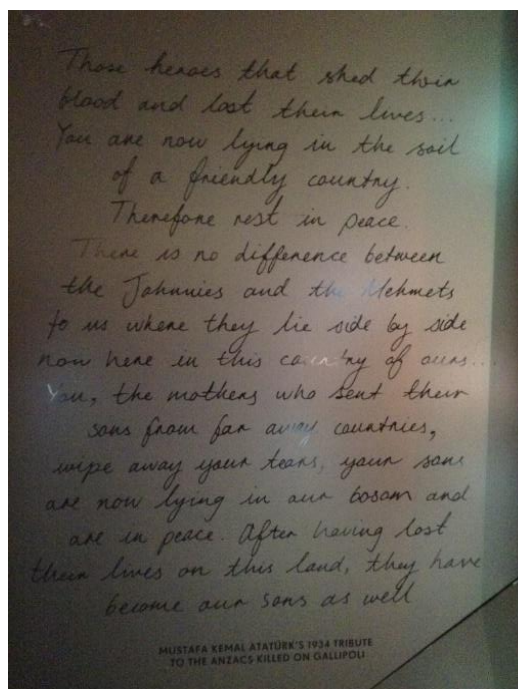 Those heroes that shed their
blood and lost their lives...
You are now lying in the soil
of a friendly country.
Therefore rest in peace.
There is no difference between
the Johnnies and the Mehmets
to us where they lie side by side
now here in this country of ours...
You, the mothers who sent their
sons from far away countries,
wipe away your tears, your sons
are now lying in our bosom and
are in peace. After having lost
their lives on this land, they have
become our sons as well
MUSTAFA KEMAL ATATÜRK'S 1934 TRIBUTE
TO THE ANZACS KILLED ON GALLIPOLI